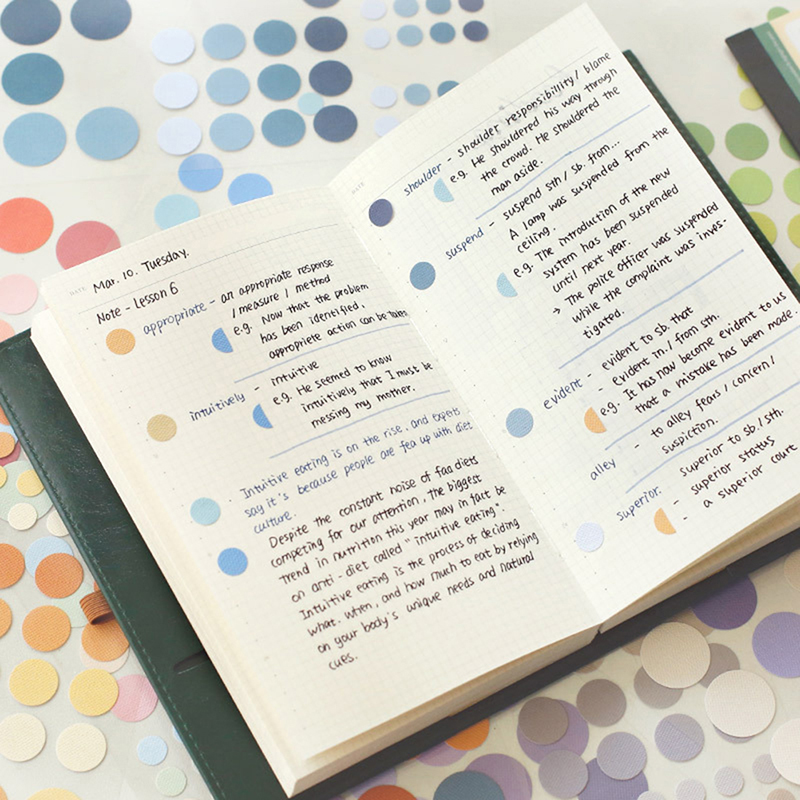 DATE
Mar. 10. Tuesday.
Note - Lesson 6
appropriate - an appropriate response
/ measure / method
e.g. Now that the problem
has been identified,
appropriete action can be taken
intuitively - intuitive
e.g. He seemed to know
intuitively that I must be
messing my mother.
Intuitive eating is on the rise, and experts
say it's because people are fea up with diet
culture.
Despite the constant noise of faa diets
competing for our attention, the biggest
trend in nutrition this year may in fact be
on anti-diet called "intuitive eating".
Intuitive eating is the process of deciding
what, when, and how much to eat by relying
on your body's unique needs and natural
cues.
DATE
shoulder - shoulder responsibility / blame
e.g. He shouldered his way through
the crowd. He shouldered the
man aside.
suspend - suspend sth / sb. from...
A lamp was suspended from the
ceiling.
e.g. The introduction of the new
system has been suspended
until next year.
→ The police officer was suspended
while the complaint was inves-
tigated.
evident - evident to sb. that
- evident in / from sth.
e.g. It has now become evident to us
that a mistake has been made.
alley - to alley fears / concern /
suspicion.
superior - superior to sb. / sth.
- superior status
- a superior court